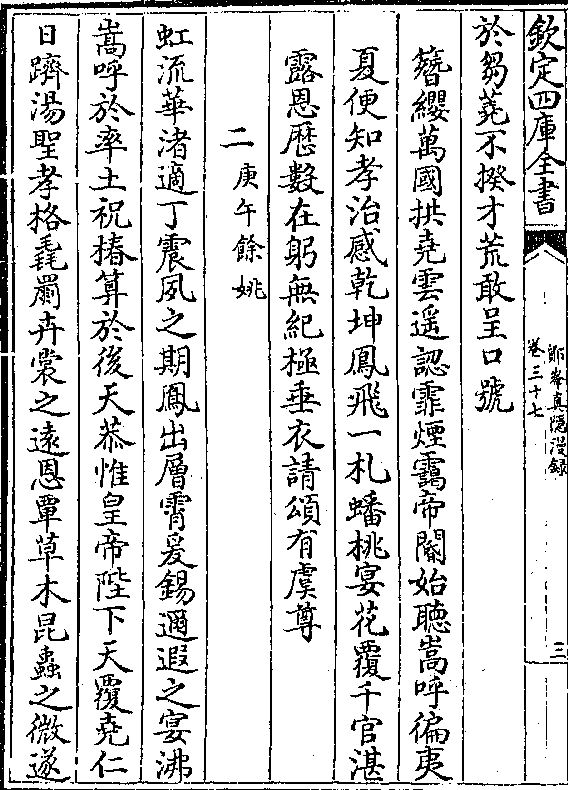 欽定四庫全書
鄮峯真隱漫録
卷三十七
三
於芻蕘不揆才荒敢呈口號
簪纓萬國拱堯雲遥認霏煙靄帝閽始聽嵩呼徧夷
夏便知孝治感乾坤鳳飛一札蟠桃宴花覆千官湛
露恩歴數在躬無紀極垂衣請頌有虞尊
二庚午餘姚
虹流華渚適丁震夙之期鳳出層霄爰錫邇遐之宴沸
嵩呼於率土祝椿算於後天恭惟皇帝陛下天覆堯仁
日躋湯聖孝格毳罽卉裳之遠恩覃草木昆蟲之微遂